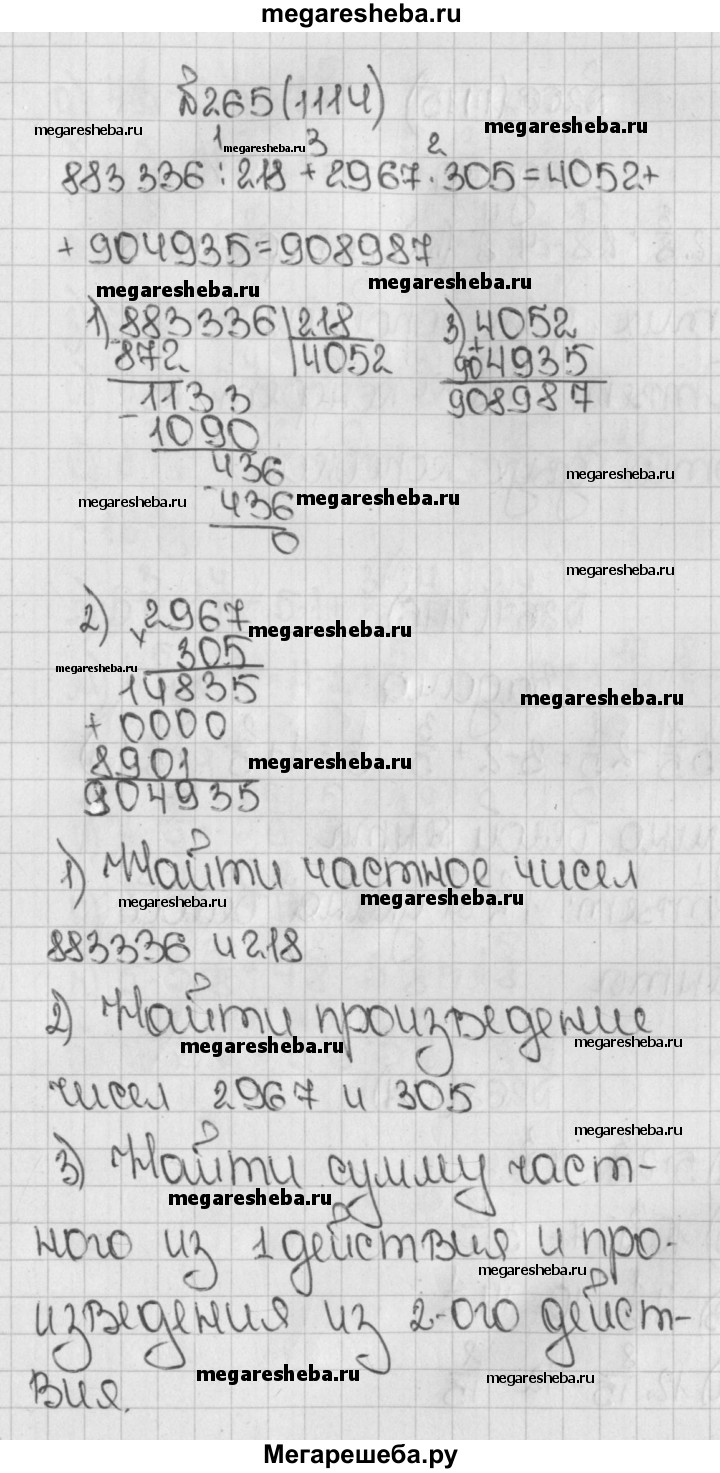 megaresheba.ru
№265(1114)
megaresheba.ru
megaresheba.ru
1 megaresheba.ru 3 2
883 336 : 218 + 2967 · 305 = 4052 +
+ 904935 = 908987
megaresheba.ru
megaresheba.ru
1) 883336 | 218
- 872 4052
1133
- 1090
436
- 436
0
3) 4052
+ 904935
908987
megaresheba.ru
megaresheba.ru
megaresheba.ru
megaresheba.ru
2) 2967
× 305
14835
+ 0000
8901
904935
megaresheba.ru
megaresheba.ru
megaresheba.ru
megaresheba.ru
1) Найти частное чисел
megaresheba.ru
megaresheba.ru
883336 и 218
2) Найти произведение
megaresheba.ru
megaresheba.ru
чисел 2967 и 305
megaresheba.ru
3) Найти сумму част-
megaresheba.ru
ного из 1 действия и про-
megaresheba.ru
изведения из 2-ого дейст-
megaresheba.ru
megaresheba.ru
вия.
Мегарешеба.ру